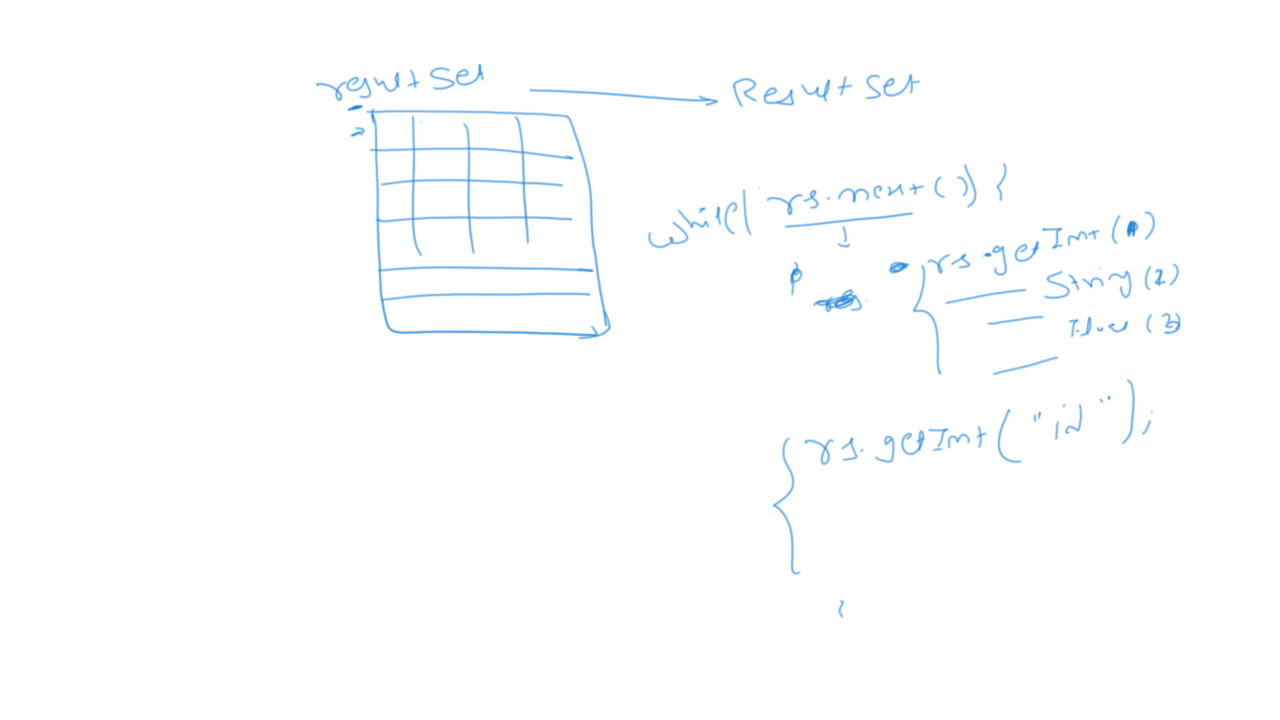 resultSet
ResultSet
while( rs.next()) {
rs.getInt( )
String(2)
(3)
rs.getInt("id");